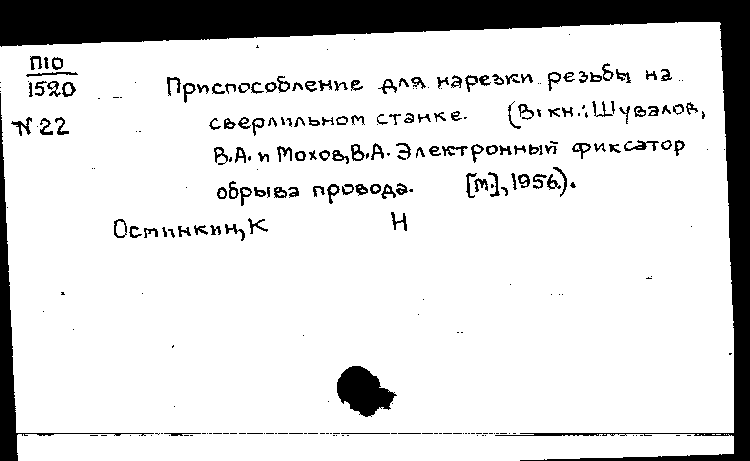 П10
1520
N 22
Приспособление для нарезки резьбы на
сверлильном станке. (В кн.: Шувалов,
В.А. и Мохов, В.А. Электронный фиксатор
обрыва провода. [М.], 1956).
Остинкин, К Н